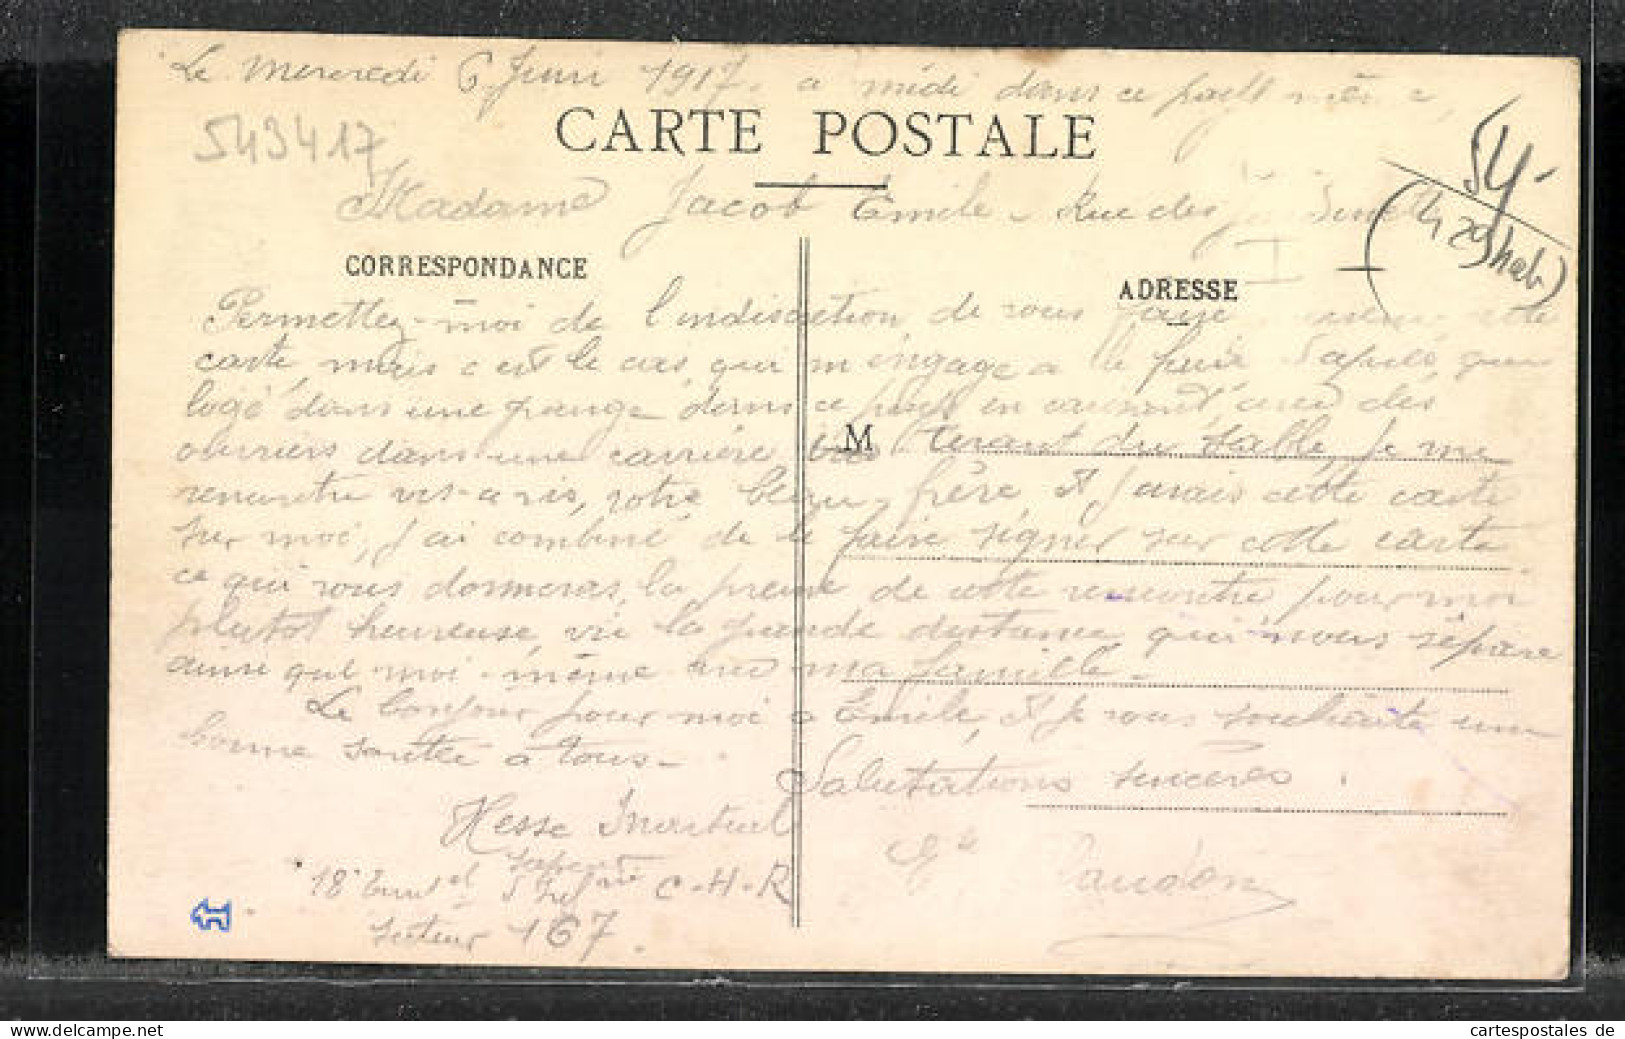 Le Mercredi 6 Juin 1917. a midi dans ce pays même
543417
CARTE POSTALE
54.-
Madame Jacob Emile. Rue des
CORRESPONDANCE
ADRESSE
Permettez-moi de l'indiscrétion de vous faire
carte, mais c'est le cas qui m'engage a le faire
logé dans une grange dans ce pays en avec des
M
ouvriers dans une carrière tirant du sable, je me
rencontre vis-a-vis, votre beau-frère et j'avais cette carte
sur moi, j'ai combiné de le faire signer sur cette carte
ce qui vous donneras, la preuve de cette rencontre pour moi
plutot heureuse, vu la grande distance qui nous sépare
ainsi que moi-même avec ma famille.
Le bonjour pour moi a Emile, et je vous souhaite une
bonne santée a tous.
Salutations sincères.
Hesse
sapeur
18 C-H-R
secteur 167.
cartespostales de